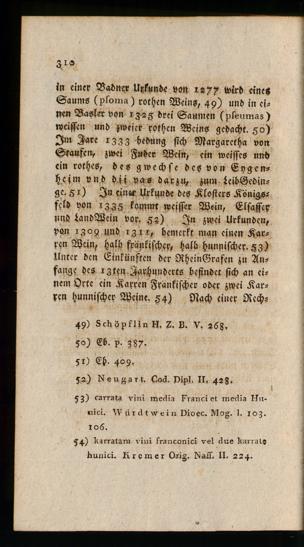 310
in einer Badner Urkunde von 1277 wird eines
Saums (psoma) rothen Weins, 49) und in ei-
nen Basler von 1325 drei Saumen (pseumas)
weissen und zweier rothen Weins gedacht. 50)
Im Jare 1333 bedung sich Margaretha von
Staufen, zwei Fuder Wein, ein weisses und
ein rothes, des gwechse des von Eygen-
heim und dii vas darzu, zum LeibGedin-
ge. 51) In einer Urkunde des Klosters Königs-
feld von 1335 kommt weisser Wein, Elsasser
und LandWein vor. 52) In zwei Urkunden,
von 1309 und 1311, bemerkt man einen Kar-
ren Wein, halb fränkischer, halb hunnischer. 53)
Unter den Einkünften der RheinGrafen zu An-
fange des 13ten Jarhunderts befindet sich an ei-
nem Orte ein Karren Fränkischer oder zwei Kar-
ren hunnischer Weine. 54) Nach einer Rech-
49) Schöpflin H. Z. B. V. 268.
50) Eb. p. 387.
51) Eb. 409.
52) Neugart. Cod. Dipl. II. 428.
53) carrata vini media Franci et media Hu-
nici. Würdtwein Dioec. Mog. I. 103.
106.
54) karratam vini franconici vel due karrate
hunici. Kremer Orig. Nass. II. 224.